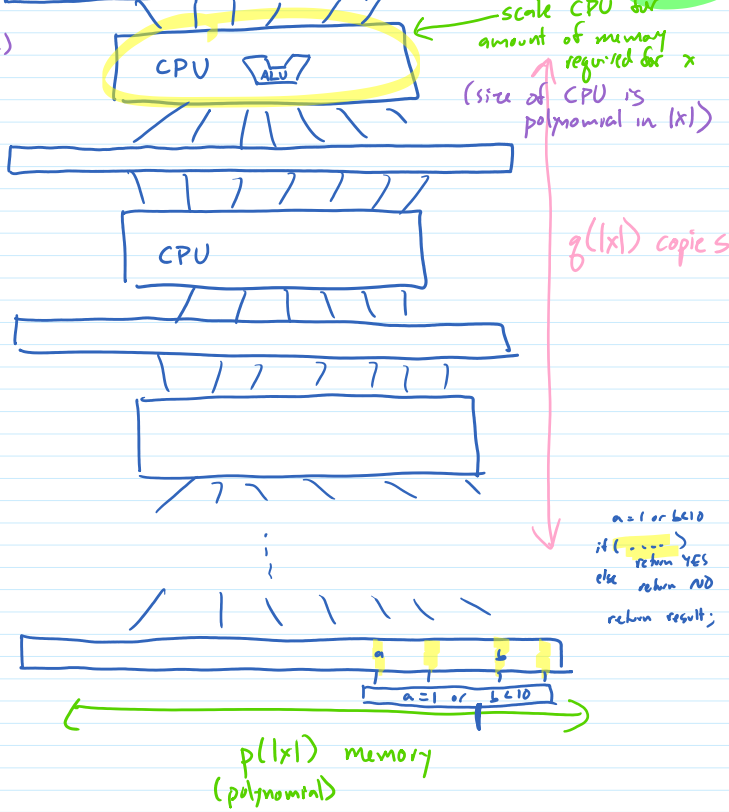 scale CPU for
amount of memory
required for x
(size of CPU is
polynomial in |x|)
)
CPU
ALU
CPU
q(|x|) copies
a=1 or b<10
if (....)
return YES
else return NO
return result;
a
b
a=1 or b<10
p(|x|) memory
(polynomial)